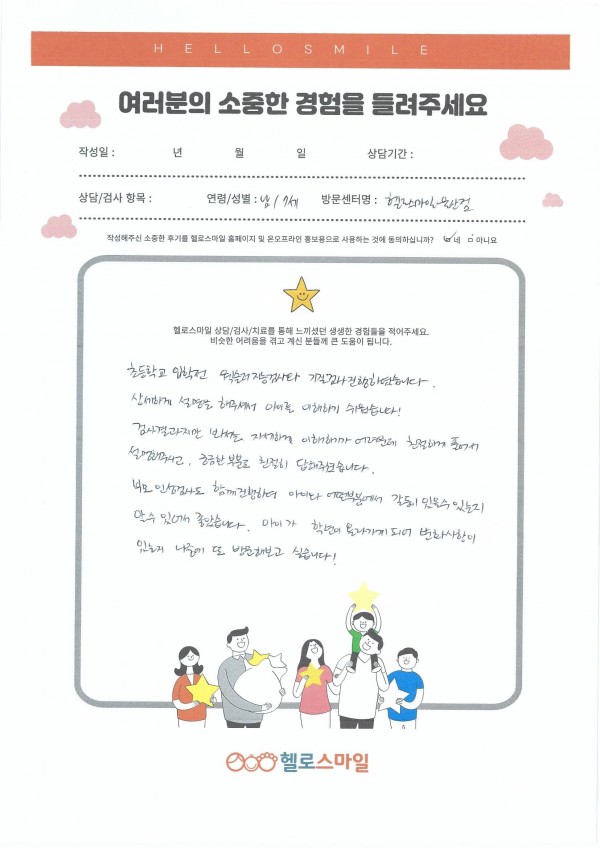 HELLOSMILE
여러분의 소중한 경험을 들려주세요
작성일 : 년 월 일 상담기간 :
상담/검사 항목 : 연령/성별 : 남 / 7세 방문센터명 : 헬로스마일
작성해주신 소중한 후기를 헬로스마일 홈페이지 및 온오프라인 홍보용으로 사용하는 것에 동의하십니까? 네 아니요
헬로스마일 상담/검사/치료를 통해 느끼셨던 생생한 경험들을 적어주세요.
비슷한 어려움을 겪고 계신 분들께 큰 도움이 됩니다.
초등학교 입학전 웩슬러지능검사와 기질검사 진행하였습니다.
상세하게 설명을 해주셔서 아이를 이해하기 쉬웠습니다!
검사결과지만 봐서는 자세하게 이해하기가 어려운데 친절하게 풀어서
설명해주시고, 궁금한 부분도 친절히 답해주셨습니다.
부모 인성검사도 함께 진행하여 아이와 어떤부분에서 갈등이 있을수 있는지
알 수 있어서 좋았습니다. 아이가 학년이 올라가게 되어 변화사항이
있는지 나중에 또 방문해보고 싶습니다!
헬로스마일